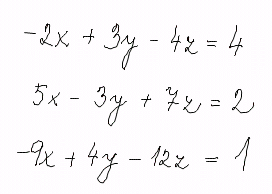 -2x + 3y - 4z = 4
5x - 3y + 7z = 2
-9x + 4y - 12z = 1